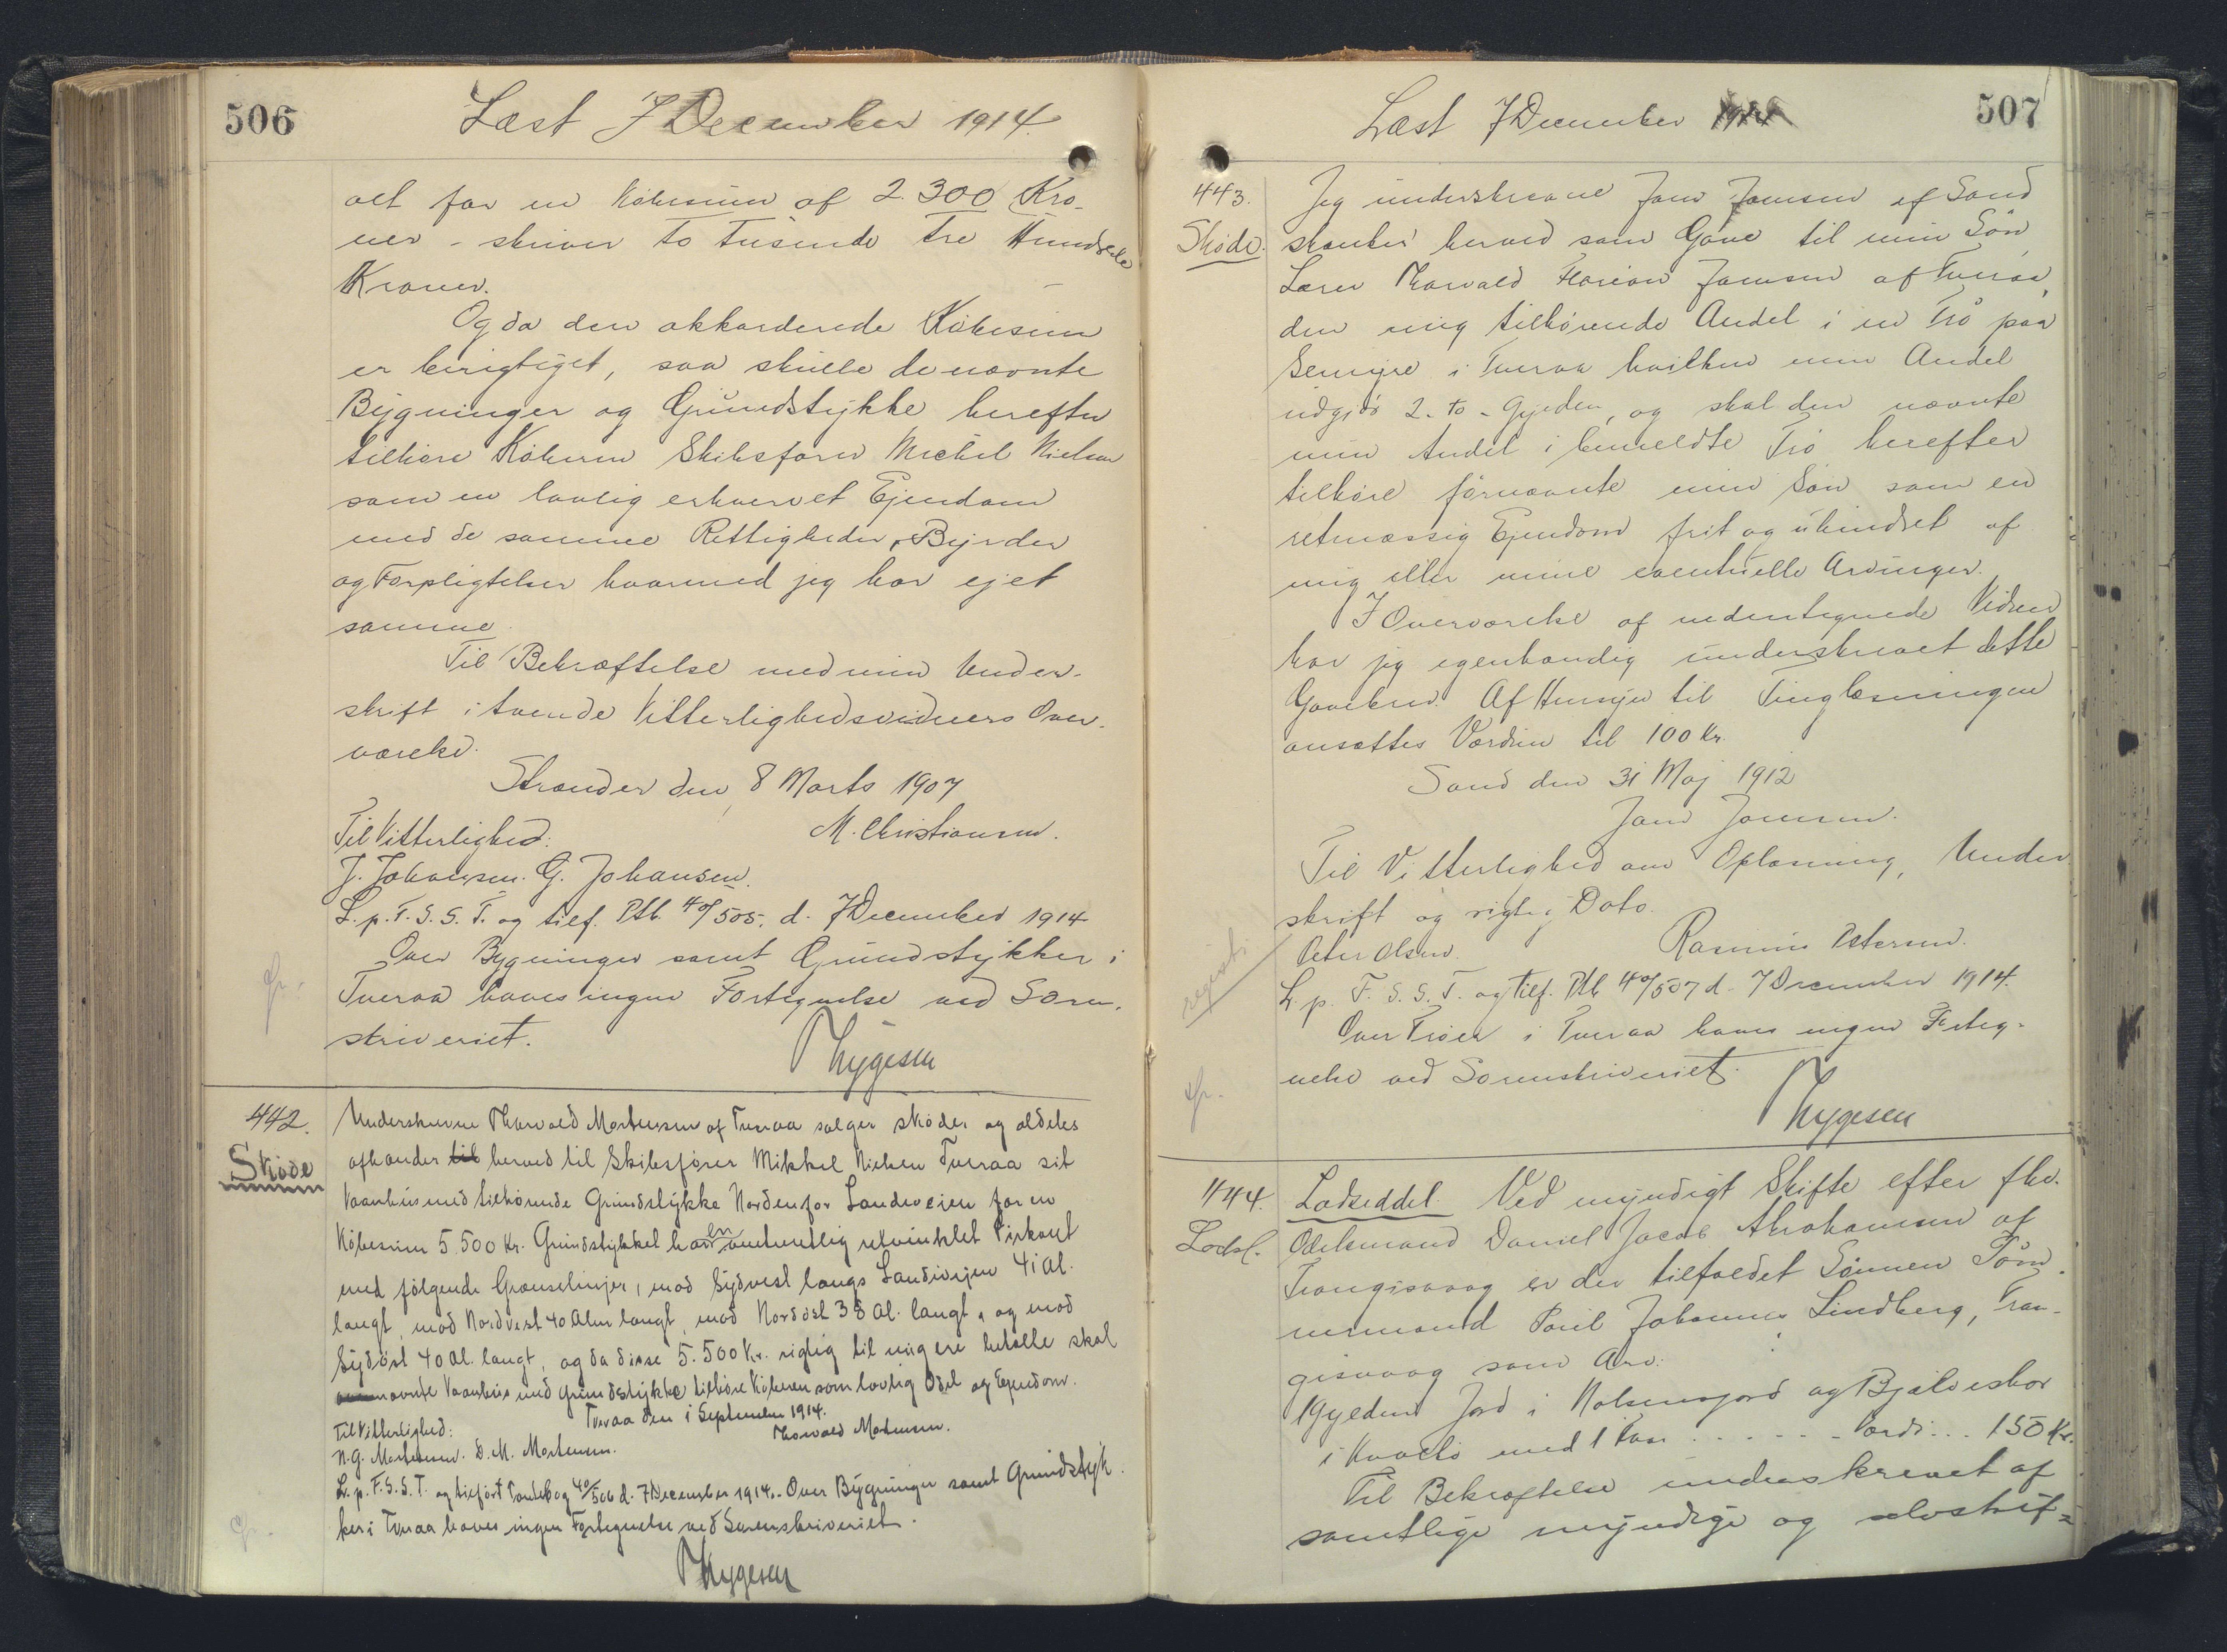 506
Læst 7 December 1914.
alt for en Købesum af 2.300 Kro-
ner - skriver to Tusinde tre Hundrede
Kroner.
Og da den akkorderede Købesum
er berigtiget, saa skulle de nævnte
Bygninger og Grundstykke herefter
tilhøre Køberen Skibsfører Michel Nielsen
som en lovlig erhvervet Ejendom
med de samme Rettigheder, Byrder
og Forpligtelser hvormed jeg har ejet
samme.
Til Bekræftelse med min Under-
skrift i tvende Vitterlighedsvidners Over-
værelse.
Strender den 8 Marts 1907
Til Vitterlighed: M. Christiansen.
J. Johansen. G. Johansen.
L. p. F. S. S. T. og tilf. Ptb. 40/505. d. 7 December 1914
Over Bygninger samt Grundstykker i
Tveraa haves ingen Fortegnelse ved Soren-
skriveriet.
Thygesen
442.
Skøde
Underskrevne Thorvald Mortensen af Tveraa sælger skøder og aldeles
afhænder til herved til Skibsfører Mikkel Nielsen Tveraa sit
Vaanhus med tilhørende Grundstykke Nordenfor Landeveien for en
Købesum 5.500 Kr. Grundstykket har en omtrentlig retvinklet Firkant
med følgende Grænselinjer, mod Sydvest langs Landivejen 41 Al.
langt, mod Nordvest 40 Alen langt, mod Nordøst 38 Al. langt, og mod
Sydøst 40 Al. langt, og da disse 5.500 Kr. rigtig til mig ere betalte skal
nævnte Vaanhus med Grundstykke tilhøre Køberen som lovlig Odel og Ejendom.
Tveraa den 1 September 1914.
Til Vitterlighed: Thorvald Mortensen.
N. G. Mortensen. D. M. Mortensen.
L. p. F. S. S. T. og tilført Pantebog 40/506 d. 7 December 1914. - Over Bygninger samt Grundstyk-
ker i Tveraa haves ingen Fortegnelse ved Sorenskriveriet.
Thygesen
507
Læst 7 December 1914
443.
Skøde.
Jeg underskrevne Jens Joensen af Sand
skænker herved som Gave til min Søn,
Lærer Thorvald Florian Joensen af Tveraa,
den mig tilhørende Andel i en Trø paa
Semyre i Tveraa hvilken min Andel
udgjør 2 - to - Gylden, og skal den nævnte
min Andel i bemeldte Trø herefter
tilhøre førnævnte min Søn som en
retmæssig Ejendom frit og uhindret af
mig eller mine eventuelle Arvinger.
I Overværelse af undertegnede Vidner
har jeg egenhændig underskrevet dette
Gavebrev. Af Hensyn til Tinglæsningen
ansættes Værdien til 100 Kr.
Sand den 31 Maj 1912
Jens Joensen.
Til Vitterlighed om Oplæsning, Under
skrift og rigtig Dato.
Peter Olsen. Rasmus Petersen.
L. p. F. S. S. T. og tilf. Ptb 40/507 d. 7 December 1914.
Over Trøer i Tveraa haves ingen Forteg-
nelse ved Sorenskriveriet.
Thygesen
444.
Lodsl.
Lodseddel. Ved myndigt Skifte efter fhv.
Odelsmand Daniel Jacob Abrahamsen af
Trangisvaag er der tilfaldet Sønnen Tøm-
mermand Poul Johannes Lindberg, Tran-
gisvaag som Arv:
1 Gylden Jord i Holsensjord og Bjelveskor
i Kvalbø med 1 Faar . . . . . . Værdi . . . 150 Kr.
Til Bekræftelse underskrevet af
samtlige myndige og selvskif-